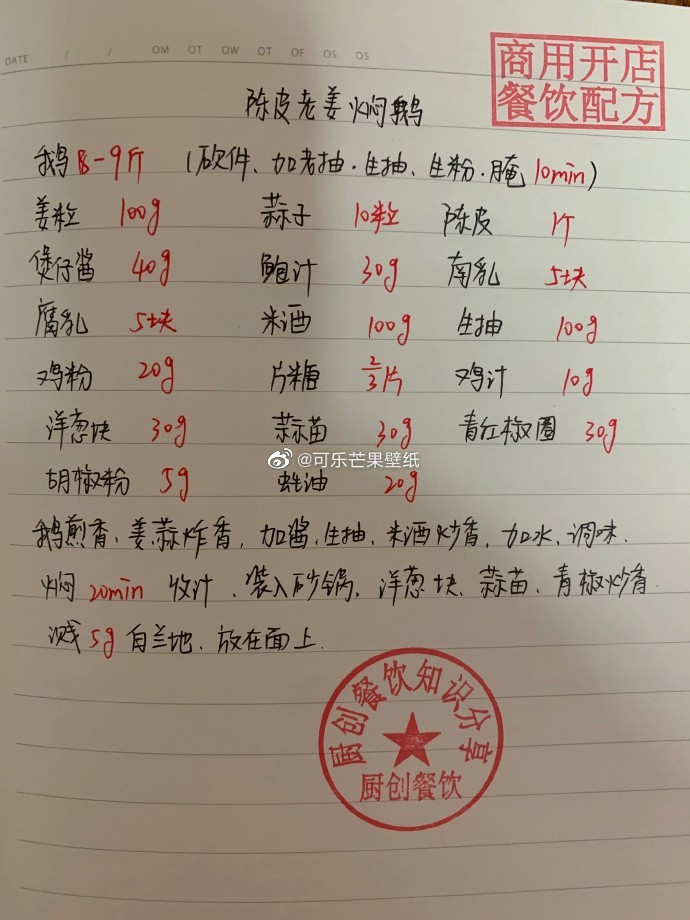 DATE / / OM OT OW OT OF OS OS
商用开店
餐饮配方
陈皮老姜焖鹅
鹅 8-9斤 (砍件、加老抽.生抽、生粉.腌10min)
姜粒 100g 蒜子 10粒 陈皮 1个
煲仔酱 40g 鲍汁 30g 南乳 5块
腐乳 5块 米酒 100g 生抽 100g
鸡粉 20g 片糖 2/3片 鸡汁 10g
洋葱块 30g 蒜苗 30g 青红椒圈 30g
@可乐芒果壁纸
胡椒粉 5g 蚝油 20g
鹅煎香、姜蒜炸香,加酱、生抽、米酒炒香,加水、调味.
焖20min 收汁、装入砂锅,洋葱块、蒜苗、青椒炒香.
溅5g白兰地、放在面上.
厨创餐饮知识分享
厨创餐饮